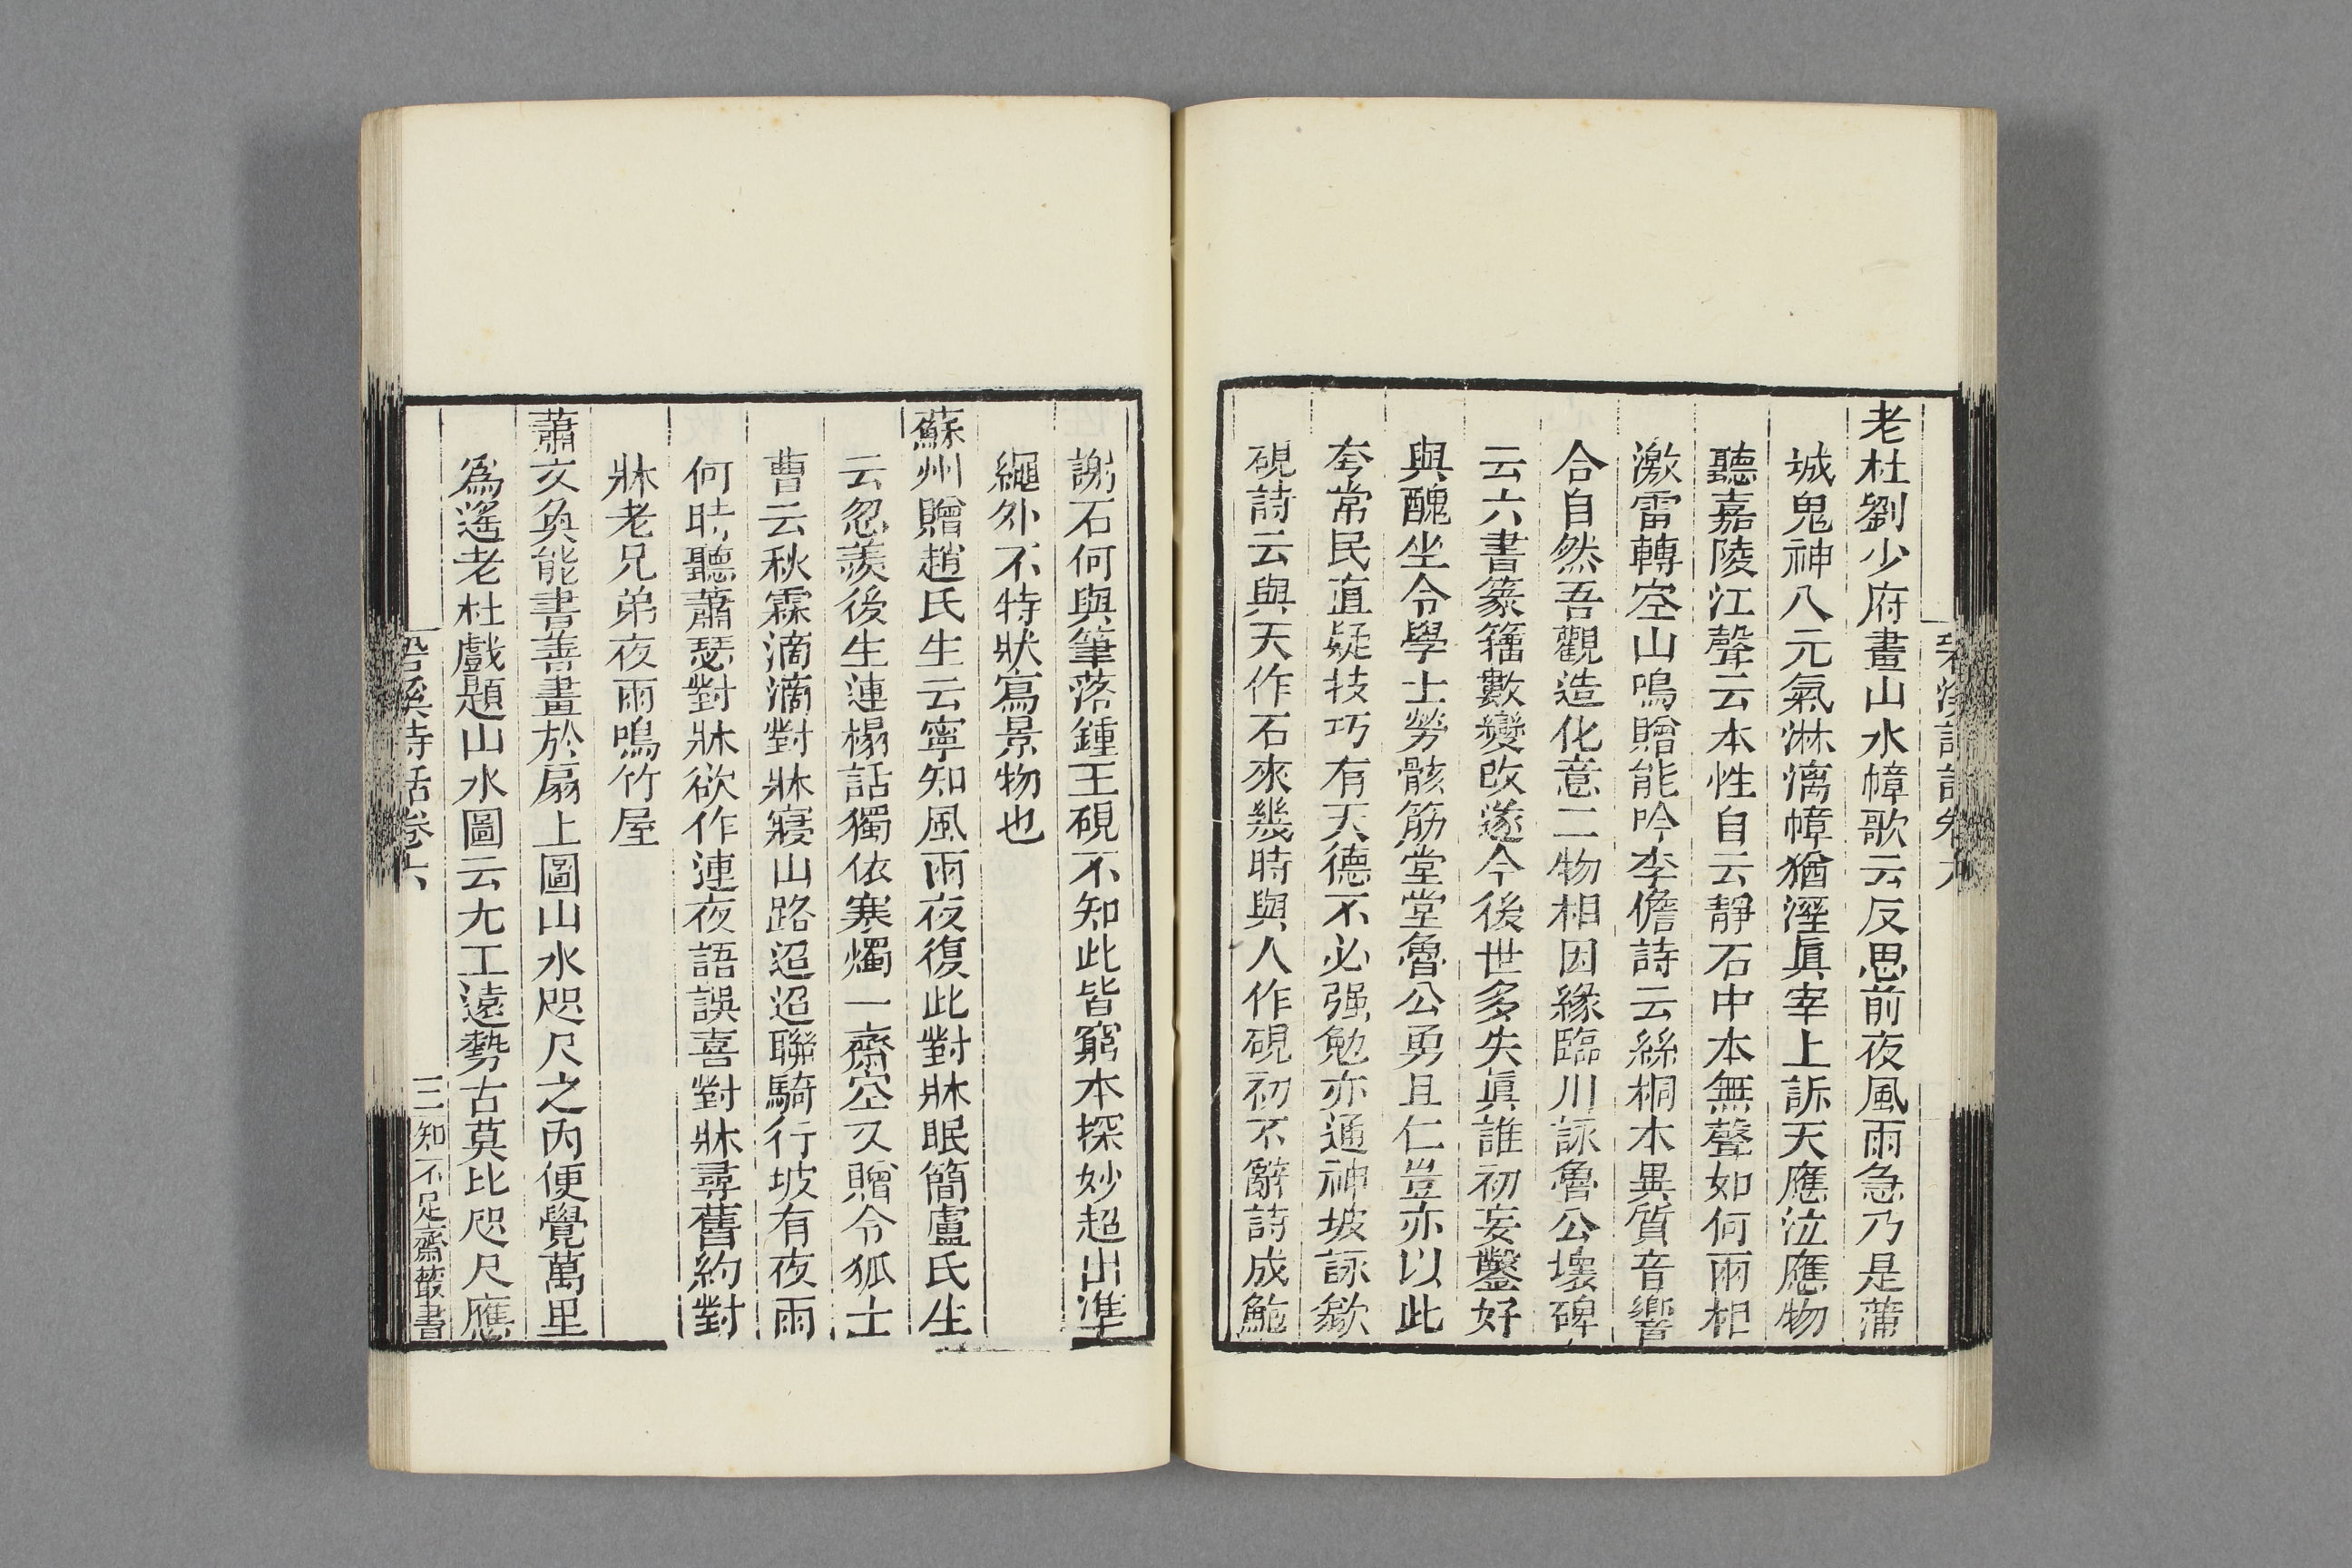 老杜劉少府畫山水幛歌云反思前夜風雨急乃是蒲
城鬼神入元氣淋漓幛猶溼眞宰上訴天應泣應物
聽嘉陵江聲云本性自云靜石中本無聲如何兩相
激雷轉空山鳴贈能吟李儋詩云絲桐本異質音響
合自然吾觀造化意二物相因緣臨川詠魯公壞碑
云六書篆籒數變改遂令後世多失眞誰初妄鑿好
與醜坐令學士勞骸筋堂堂魯公勇且仁豈亦以此
夸常民直疑技巧有天德不必强勉亦通神坡詠歙
硯詩云與天作石來幾時與人作硯初不辭詩成鮑
謝石何與筆落鍾王硯不知此皆窮本探妙超出準
繩外不特狀寫景物也
蘇州贈趙氏生云寧知風雨夜復此對牀眠簡盧氏生
云忽羨後生連榻話獨依寒燭一齋空又贈令狐士
曹云秋霖滴滴對牀寢山路迢迢聯騎行坡有夜雨
何時聽蕭瑟對牀欲作連夜語誤喜對牀尋舊約對
牀老兄弟夜雨鳴竹屋
蕭文奐能書善畫於扇上圖山水咫尺之內便覺萬里
爲遙老杜戲題山水圖云尤工遠勢古莫比咫尺應
䂬溪詩話卷六
三
知不足齋叢書